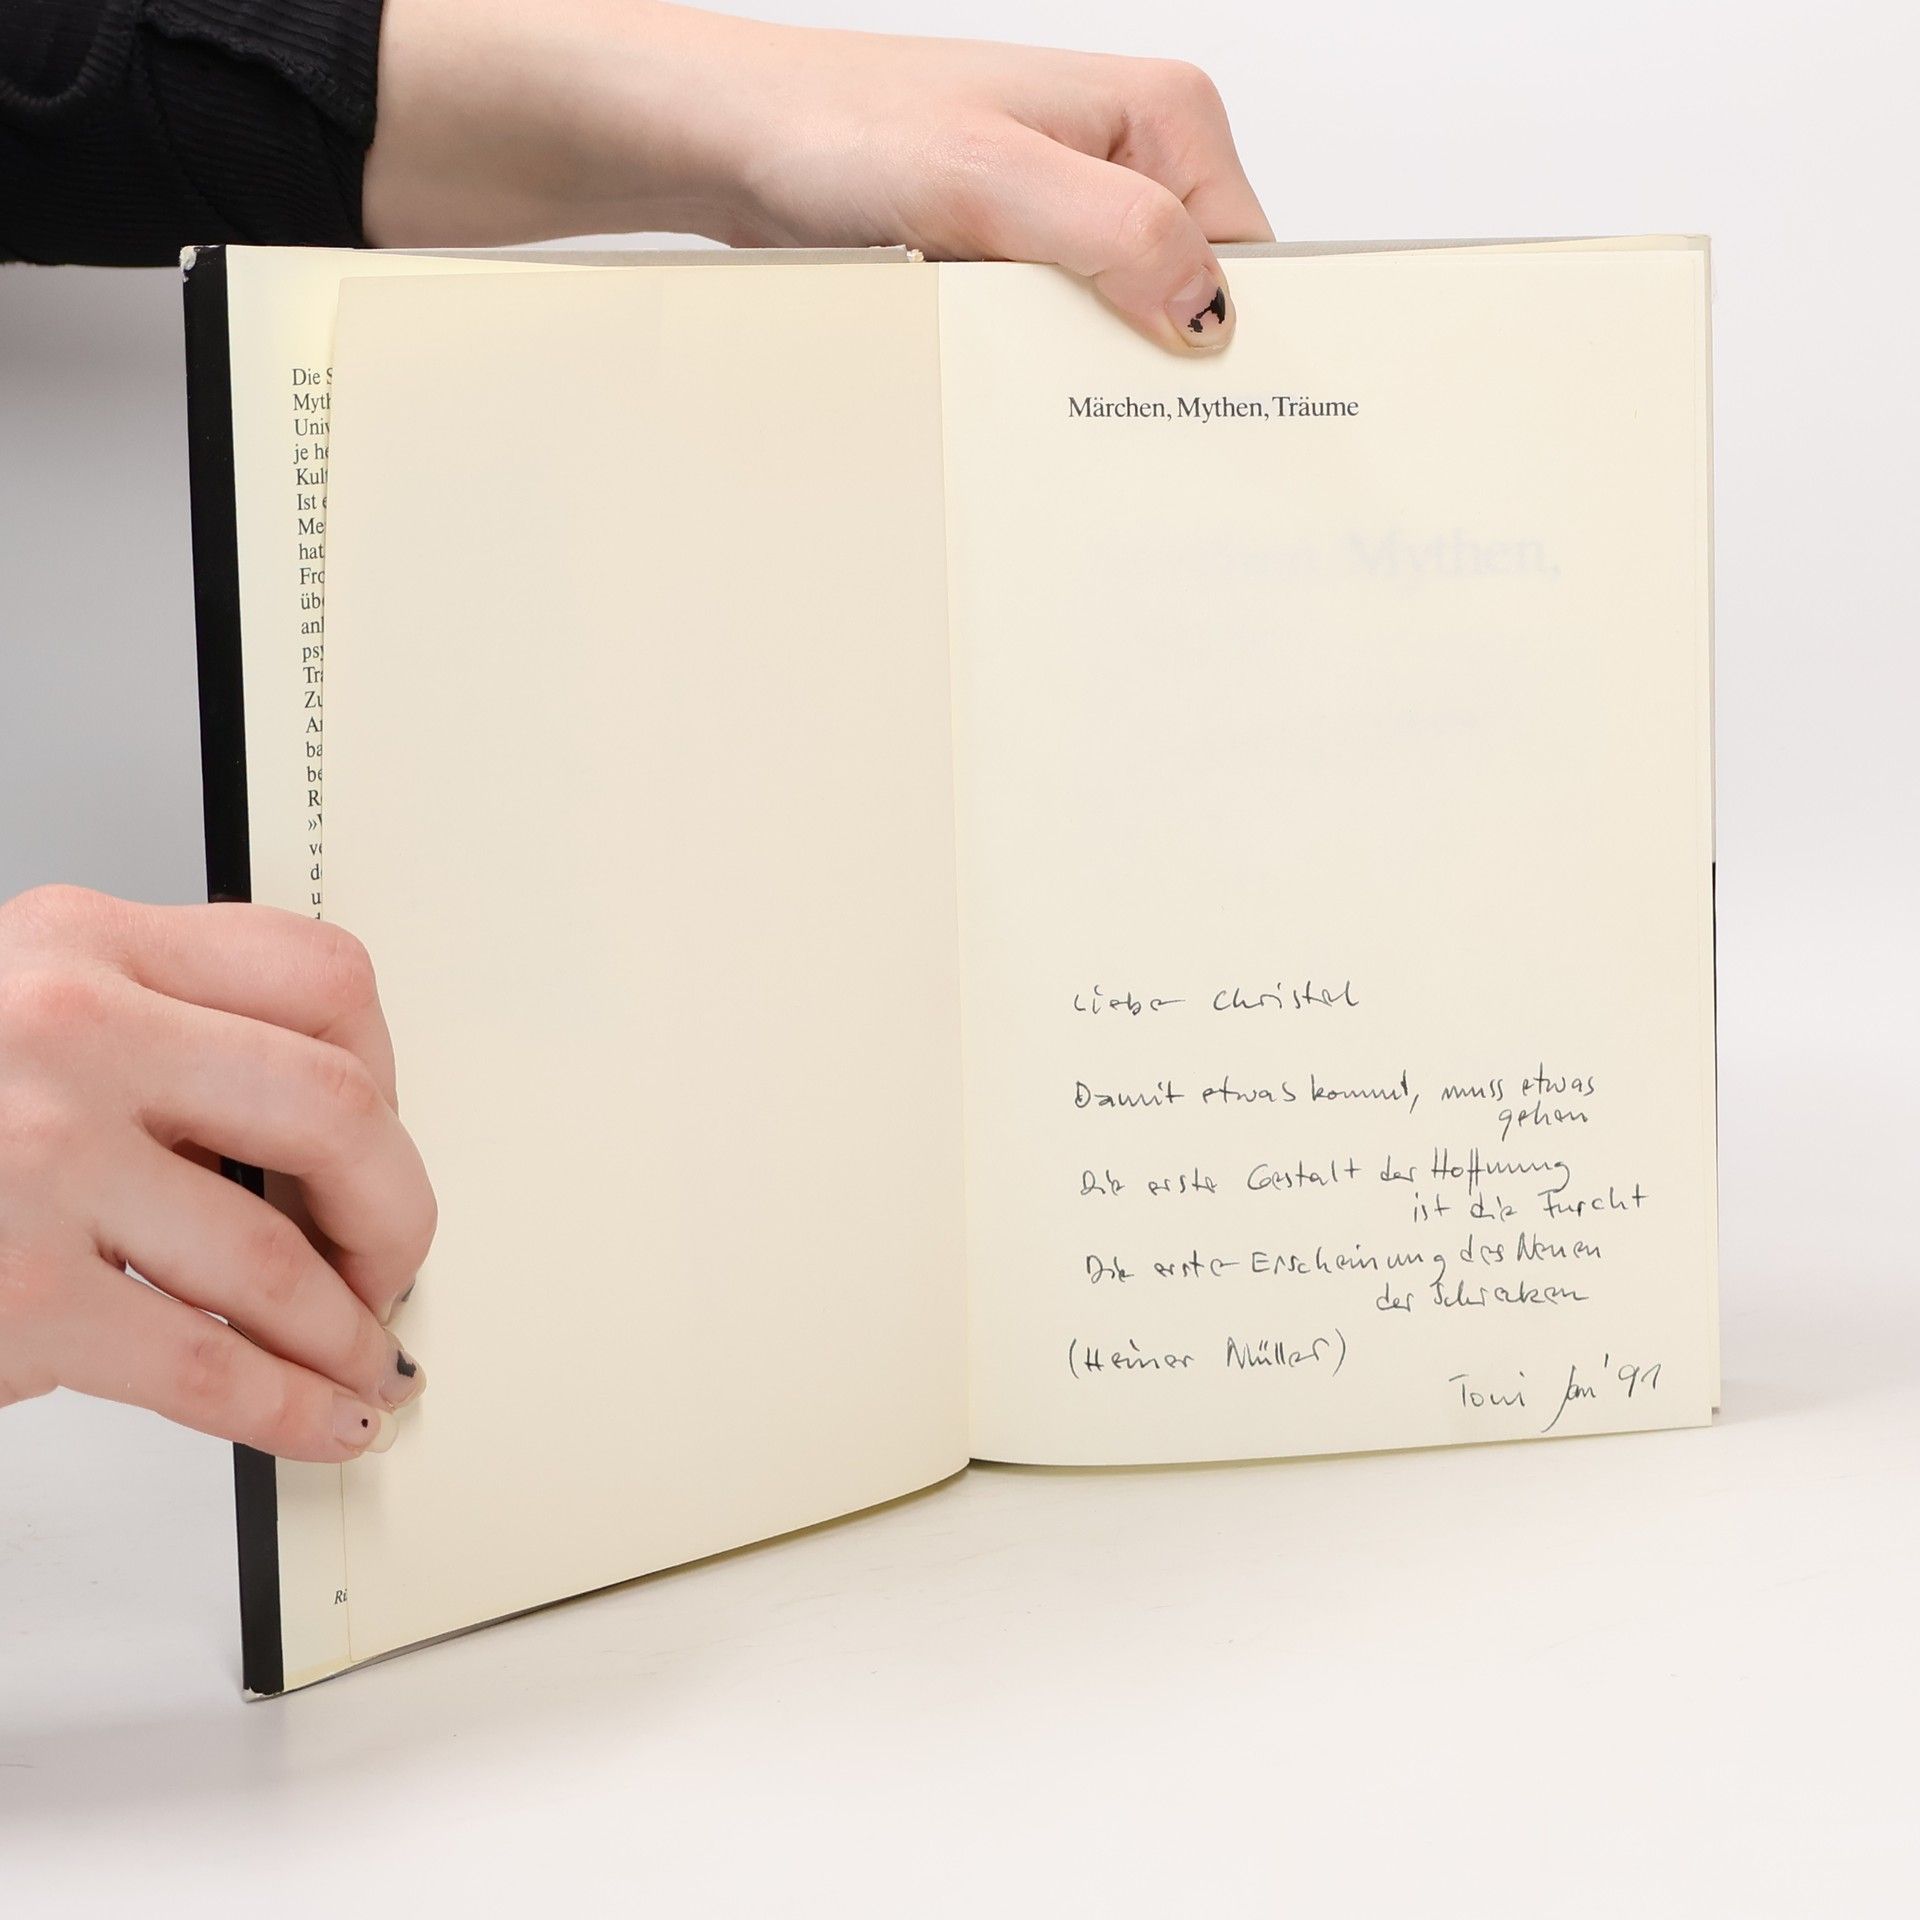 Die
Myth
Univ
je he
Kult
Ist e
Me
hat
Fro
übe
anl
psy
Tra
Zu
A
ba
be
R
»V
ve
d
u
Märchen, Mythen, Träume
Mythen,
Liebe Christel
Damit etwas kommt, muss etwas
gehen
Die erste Gestalt der Hoffnung
ist die Furcht
Die erste Erscheinung des Neuen
der Schrecken
(Heiner Müller)
Toni Jan '91